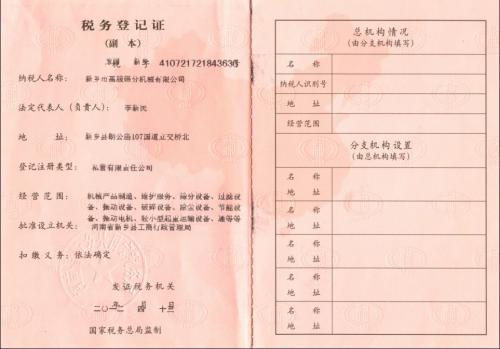 税务登记证
(副 本)
税 字 410721721843636号
纳税人名称: 新乡市高服筛分机械有限公司
法定代表人(负责人): 李新民
地 址: 新乡县朗公庙107国道立交桥北
登记注册类型: 私营有限责任公司
经营范围: 机械产品制造、维护服务、筛分设备、过滤设
备、振动设备、破碎设备、除尘设备、节能设
备、振动电机、较小型起重运输设备、通等等
批准设立机关: 河南省新乡县工商行政管理局
扣缴义务: 依法确定
发证税务机关
二〇一二 年 四 月 十三
国家税务总局监制
总机构情况
(由分支机构填写)
名 称
纳税人识别号
地 址
经营范围
分支机构设置
(由总机构填写)
名 称
地 址
名 称
地 址
名 称
地 址
名 称
地 址
名 称
地 址